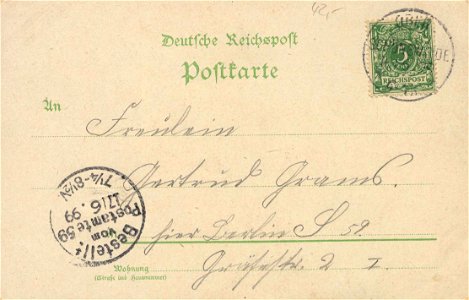 42,-
Deutsche Reichspost
Postkarte
5
REICHSPOST
An
Fräulein
Gertrud Grams.
hier Berlin S 59.
Gräfestr. 2 I.
Wohnung
(Straße und Hausnummer)
Bestellt
vom
Postamte 59
17/6. 99
7¼-8½N